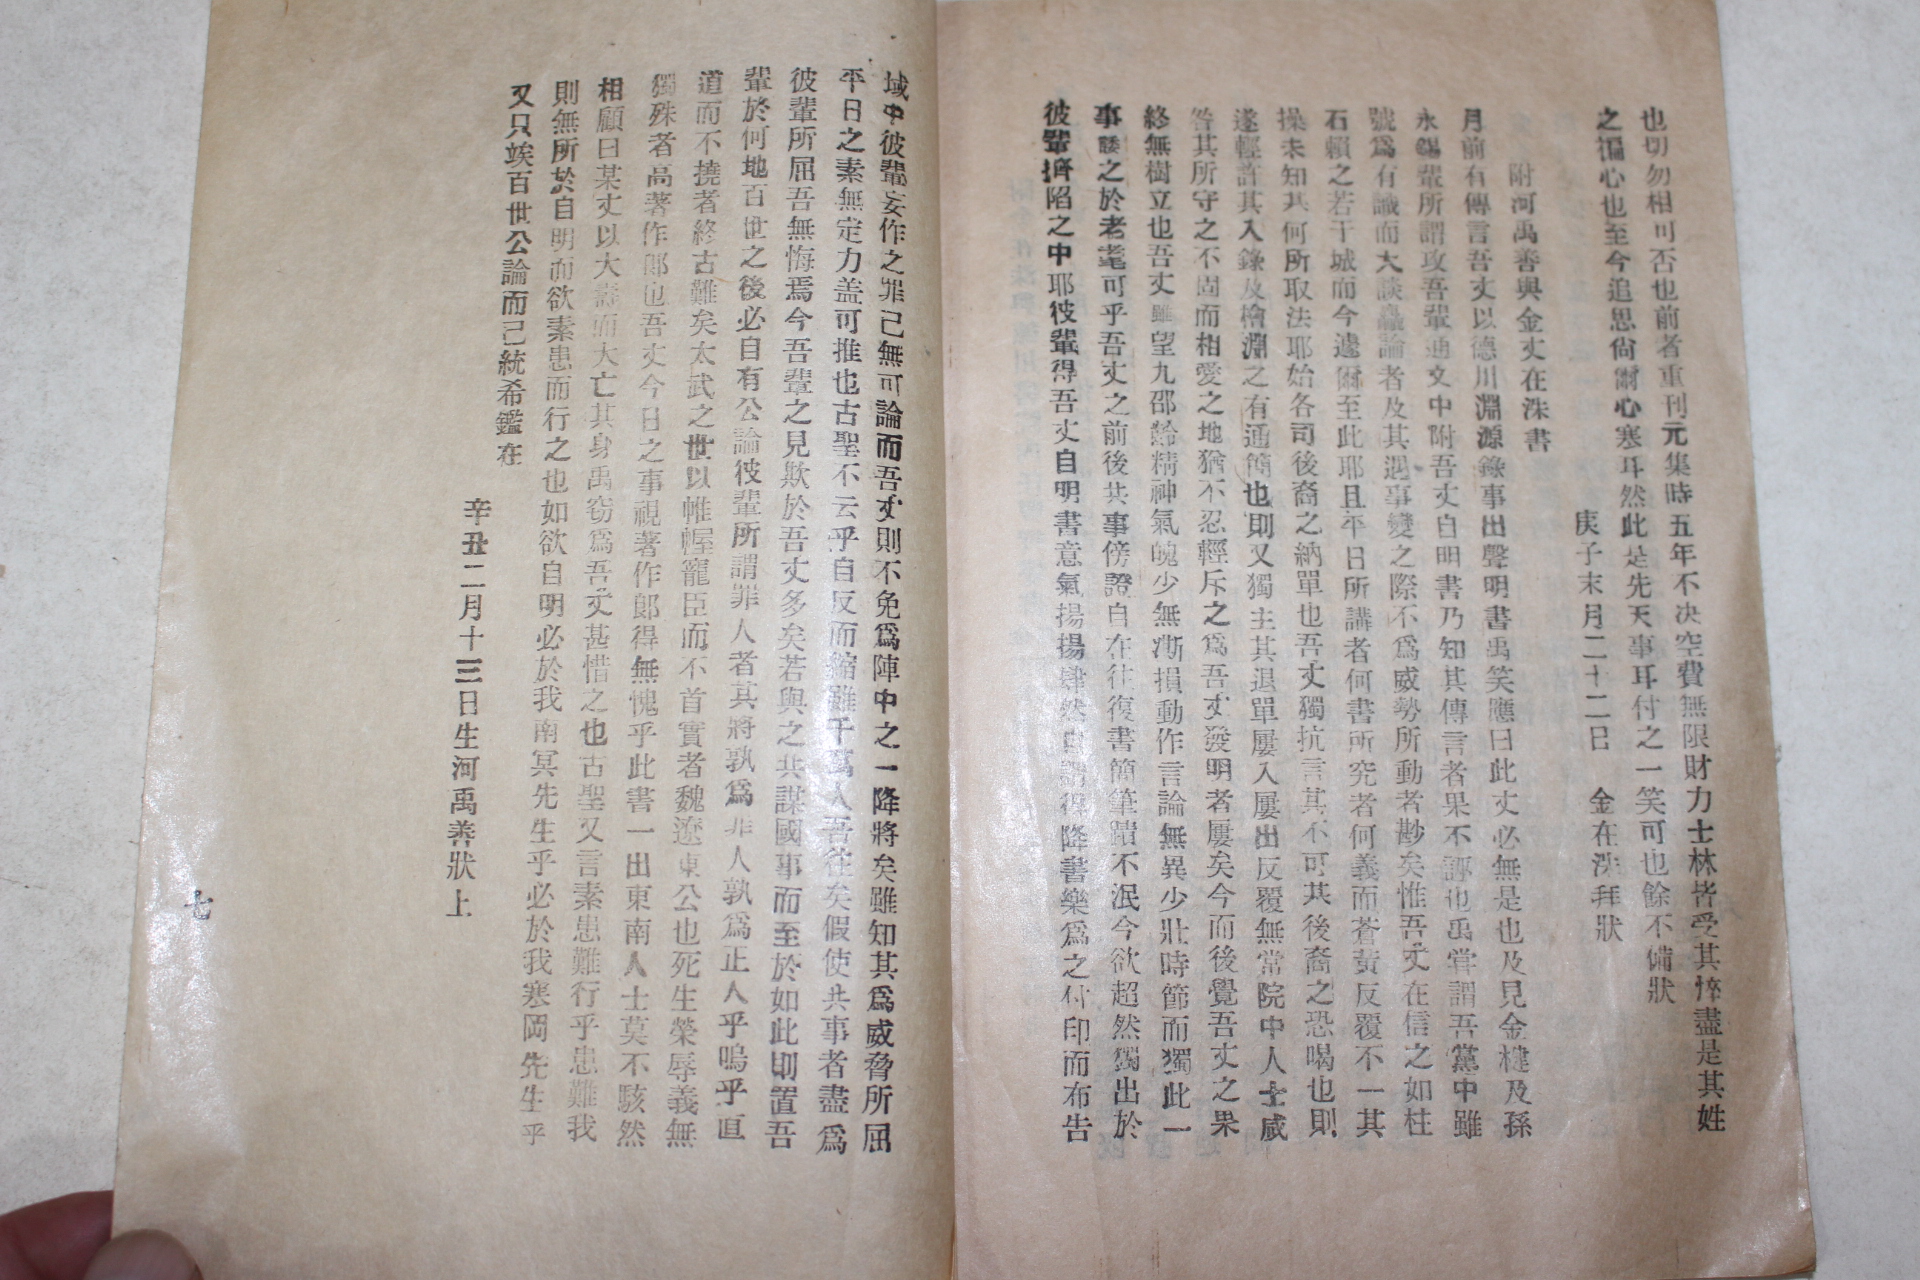 也切勿相可否也前者重刊元集時五年不決空費無限財力士林皆受其悴盡是其姓
之褊心也至今追思尙爾心寒耳然此是先天事耳付之一笑可也餘不備狀
庚子末月二十二日　金在洙拜狀
附河禹善與金丈在洙書
月前有傳言吾丈以德川淵源錄事出聲明書禹笑應曰此丈必無是也及見金槤及孫
永錫輩所謂攻吾輩通文中附吾丈自明書乃知其傳言者果不誣也禹嘗謂吾黨中雖
號爲有識而大談轟論者及其遇事變之際不爲威勢所動者尠矣惟吾丈在信之如柱
石賴之若干城而今遽爾至此耶且平日所講者何書所究者何義而蒼黃反覆不一其
操未知其何所取法耶始各司後裔之納單也吾丈獨抗言其不可其後裔之恐喝也則
遂輕許其入錄及檜淵之有通簡也則又獨主其退單屢入屢出反覆無常院中人士咸
咎其所守之不固而相愛之地猶不忍輕斥之爲吾丈發明者屢矣今而後覺吾丈之果
終無樹立也吾丈雖望九邵齡精神氣魄少無澌損動作言論無異少壯時節而獨此一
事諉之於老耄可乎吾丈之前後共事傍證自在往復書簡筆蹟不泯今欲超然獨出於
彼輩擠陷之中耶彼輩得吾丈自明書意氣揚揚肆然自謂得降書樂爲之付印而布告
域中彼輩妄作之罪已無可論而吾丈則不免爲陣中之一降將矣雖知其爲威脅所屈
平日之素無定力盖可推也古聖不云乎自反而縮雖千萬人吾往矣假使共事者盡爲
彼輩所屈吾無悔焉今吾輩之見欺於吾丈多矣若與之共謀國事而至於如此則置吾
輩於何地百世之後必自有公論彼輩所謂罪人者其將孰爲罪人孰爲正人乎嗚乎直
道而不撓者終古難矣太武之世以帷幄寵臣而不首實者魏遼東公也死生榮辱義無
獨殊者高著作郞也吾丈今日之事視著作郞得無愧乎此書一出東南人士莫不駭然
相顧曰某丈以大壽而大亡其身禹窃爲吾丈甚惜之也古聖又言素患難行乎患難我
則無所於自明而欲素患而行之也如欲自明必於我南冥先生乎必於我寒岡先生乎
又只竢百世公論而已統希鑑在
辛丑二月十三日生河禹善狀上
七